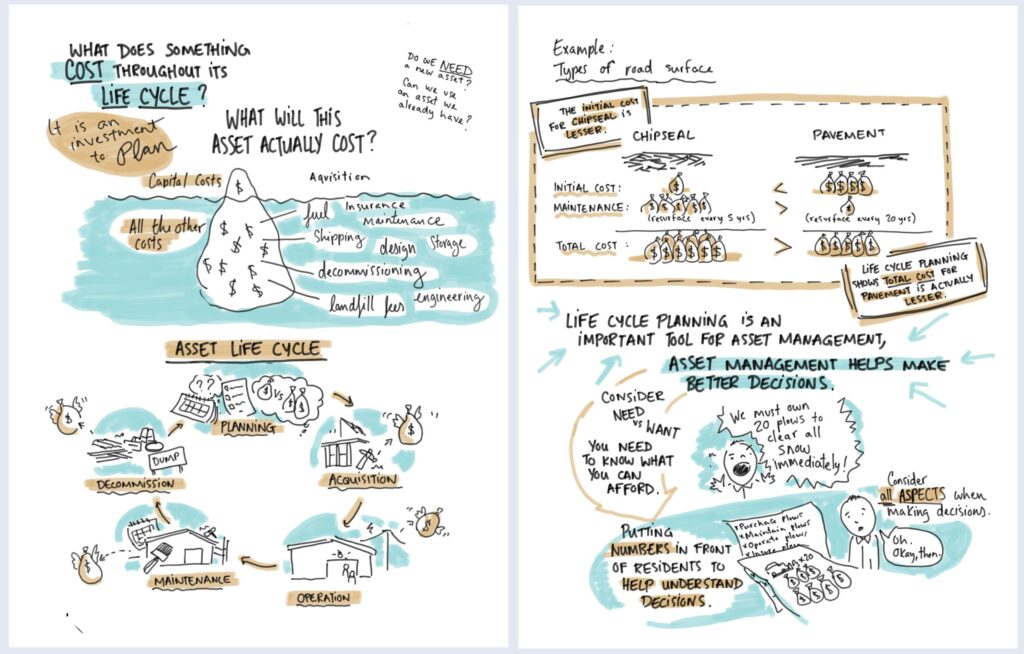 WHAT DOES SOMETHING
COST THROUGHOUT ITS
LIFE CYCLE?
DO WE NEED
a new asset?
Can we use
an asset we
already have?
It is an
investment
to Plan
WHAT WILL THIS
ASSET ACTUALLY COST?
Capital Costs
Aqvisition
$
All the other
costs
$ $ $ $ $ $ $ $ $ $ $
fuel
Insurance
Maintenance
Shipping
design
Storage
decommissioning
landfill fees
engineering
ASSET LIFE CYCLE
??
$ VS $ $
PLANNING
$
$
DUMP
DECOMMISSION
ACQUISITION
$
$
MAINTENANCE
OPERATION
Example:
Types of road surface
THE INITIAL COST
FOR CHIPSEAL IS
LESSER.
CHIPSEAL
PAVEMENT
INITIAL COST: $ < $ $ $ $
MAINTENANCE: $ $ $ $ $ $ > $
(resurface every 5 yrs)
(resurface every 20 yrs)
TOTAL COST: $ $ $ $ $ $ $ > $ $ $ $ $
LIFE CYCLE PLANNING
SHOWS TOTAL COST FOR
PAVEMENT IS ACTUALLY
LESSER.
LIFE CYCLE PLANNING IS AN
IMPORTANT TOOL FOR ASSET MANAGEMENT,
ASSET MANAGEMENT HELPS MAKE
BETTER DECISIONS.
CONSIDER
NEED
vs WANT
YOU NEED
TO KNOW WHAT
YOU CAN
AFFORD.
We must own
20 plows to
clear all
snow
immediately!
Consider
all ASPECTS when
making decisions.
PUTTING
NUMBERS IN FRONT
OF RESIDENTS TO
HELP UNDERSTAND
DECISIONS.
Purchase plows
Maintain plows
Operate plows
plows
x20
$ $ $ $ $ $ $
Oh.
Okay, then.